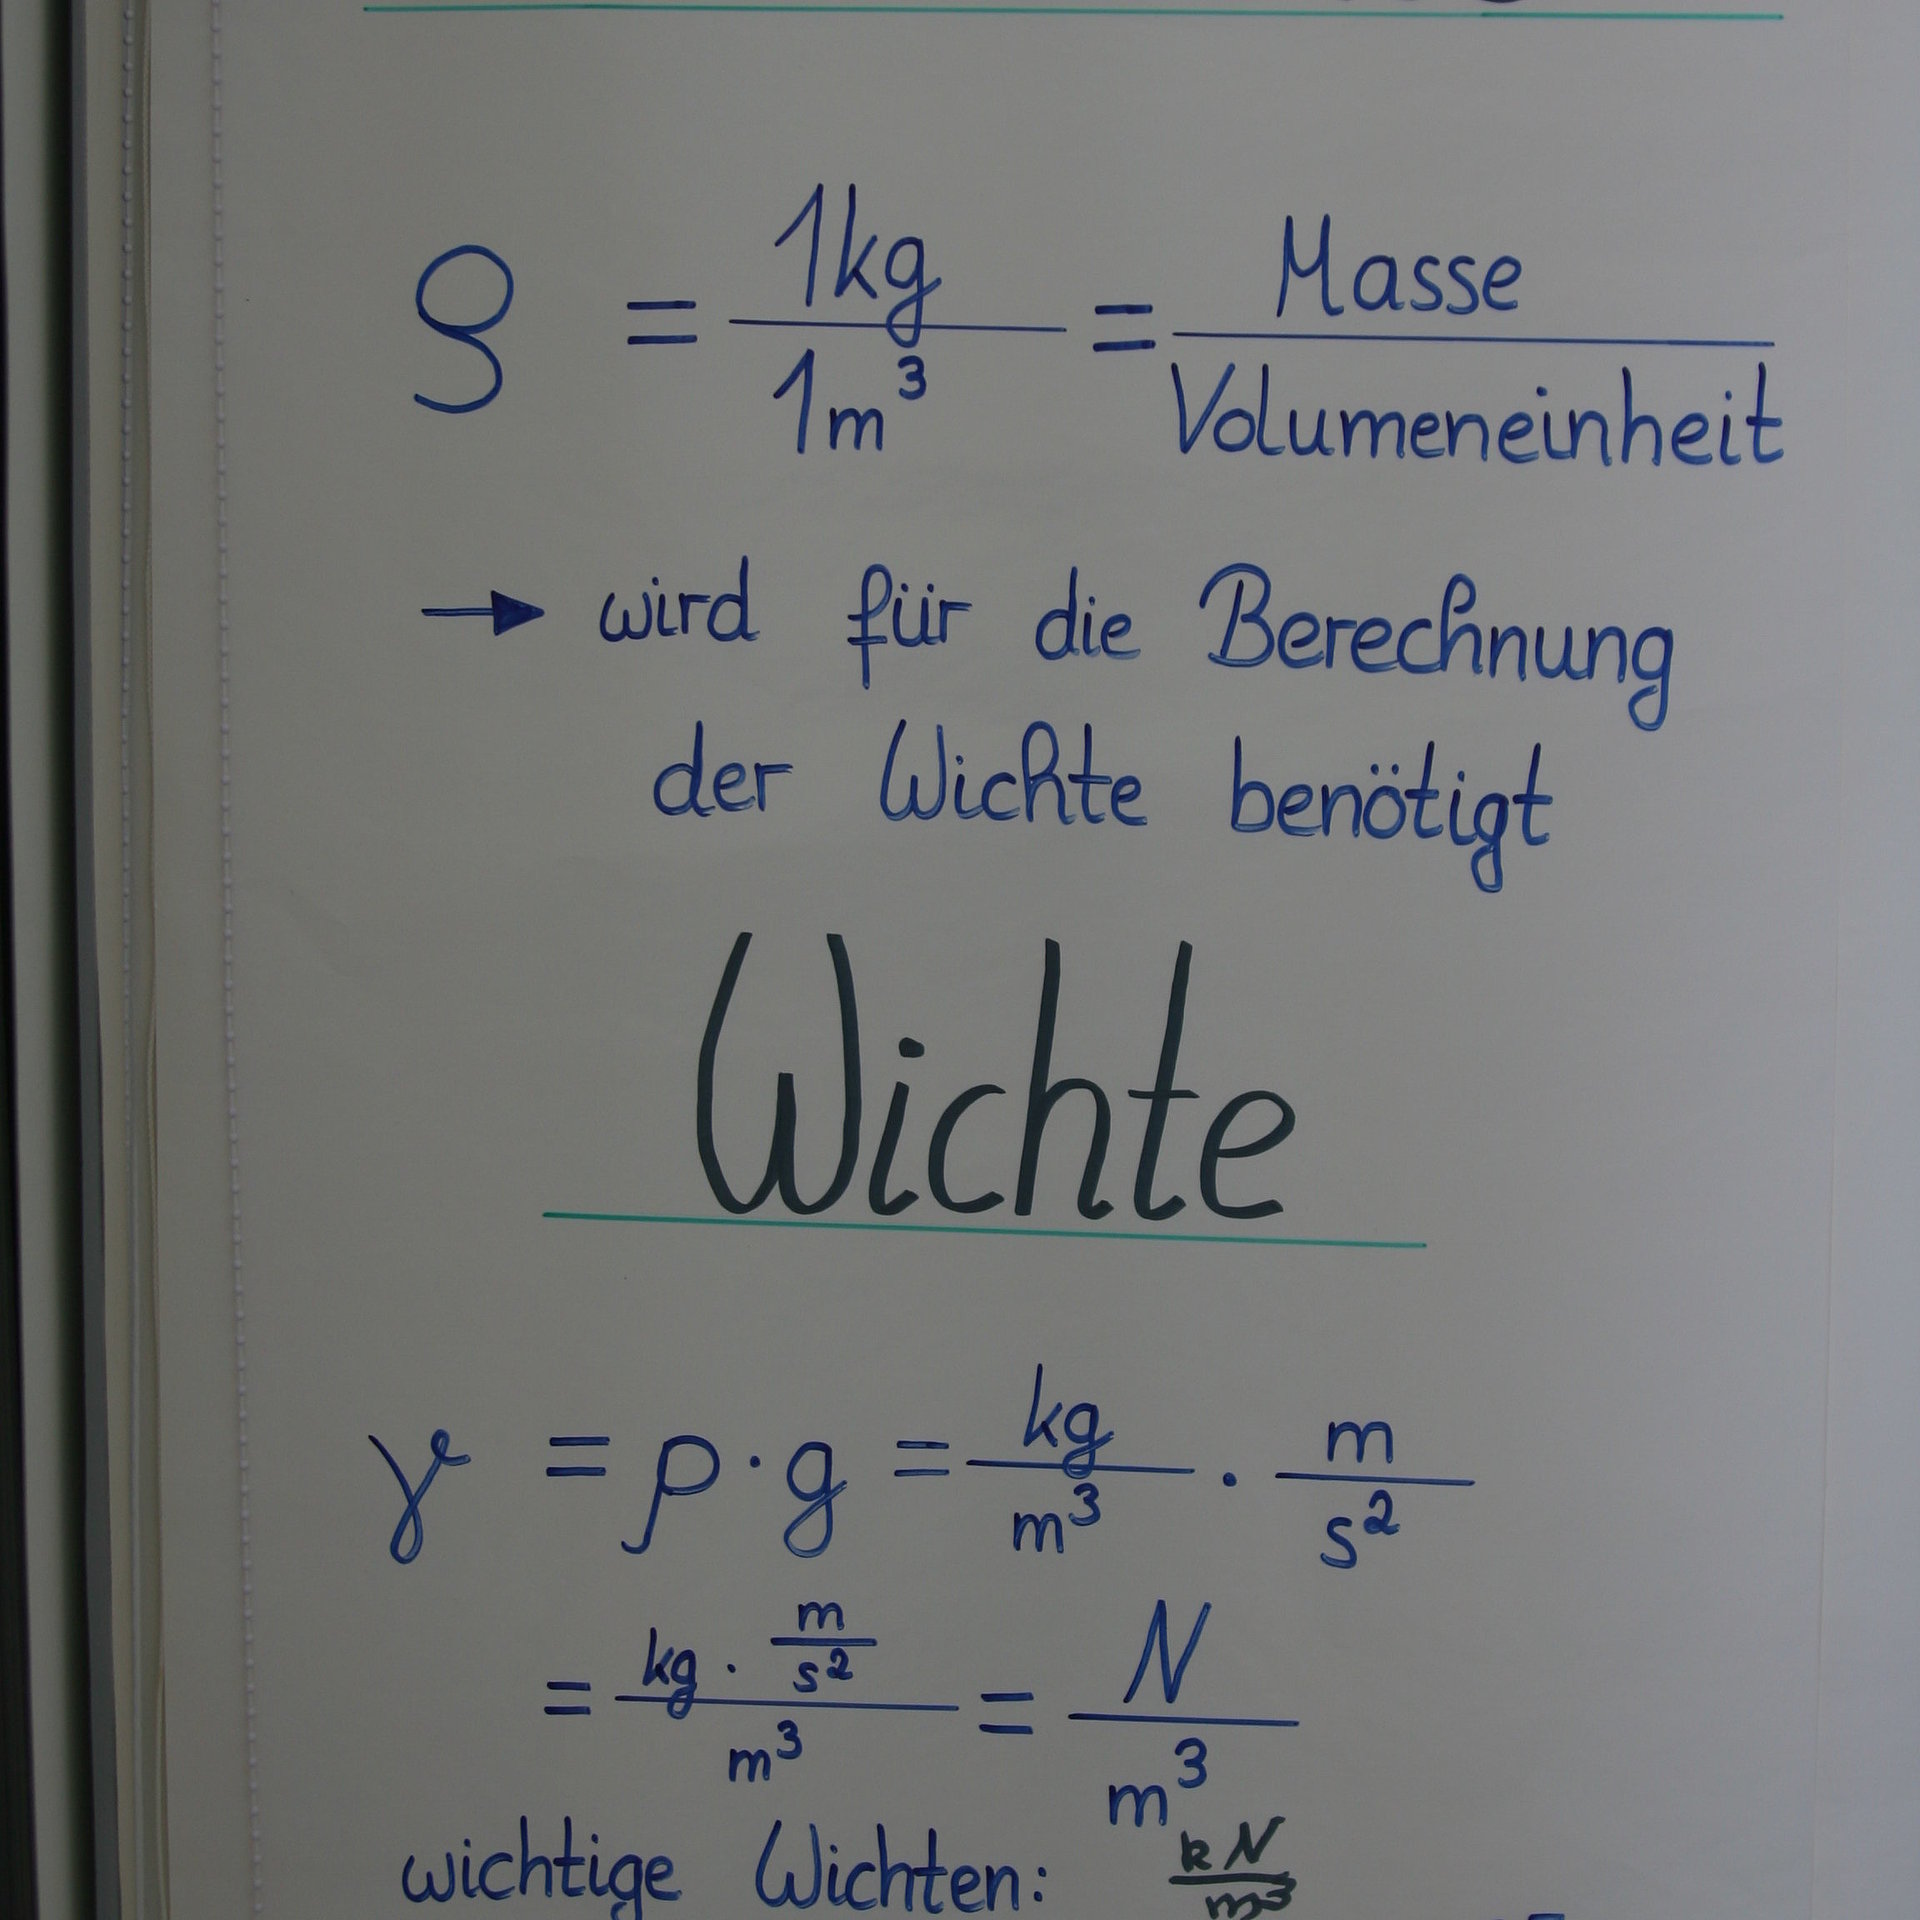 ϱ = 1kg / 1m³ = Masse / Volumeneinheit
→ wird für die Berechnung
der Wichte benötigt
Wichte
γ = ρ · g = kg / m³ · m / s²
= kg · m/s² / m³ = N / m³
wichtige Wichten: kN / m³